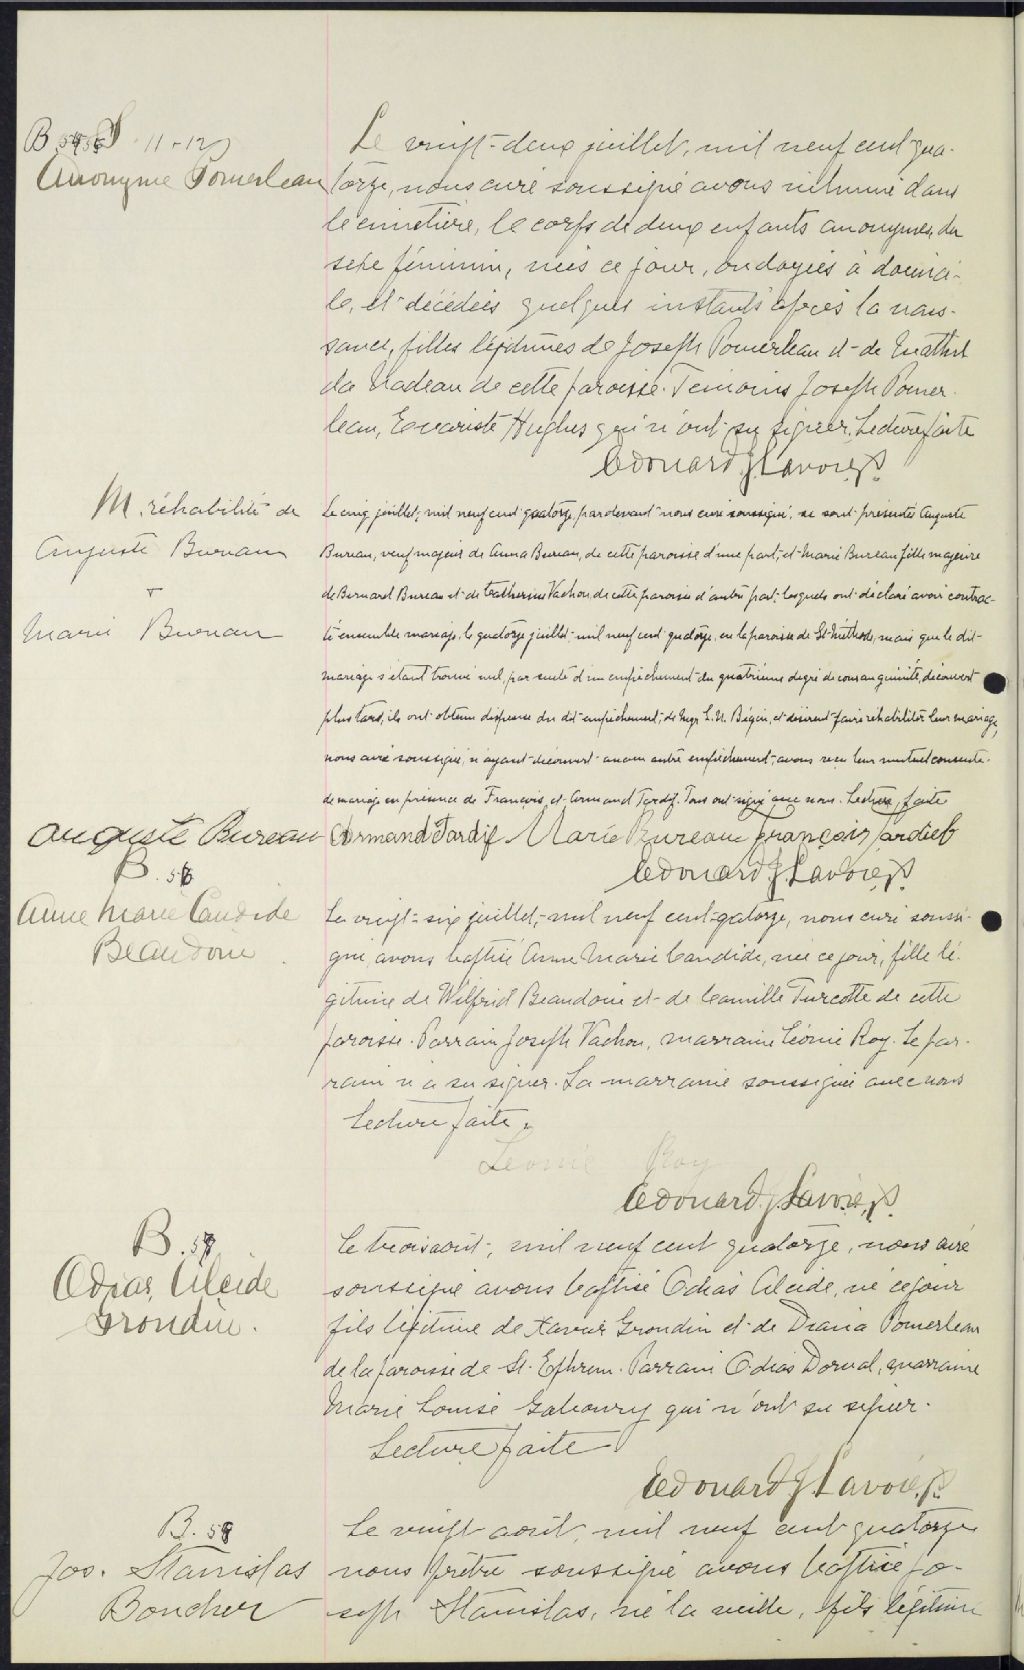 B S 11-12
Anonyme Pomerleau
Le vingt-deux juillet, mil neuf cent qua-
torze, nous curé soussigné avons inhumé dans
le cimetière, le corps de deux enfants anonymes, du
sexe féminin, nées ce jour, ondoyées à domici-
le, et décédées quelques instants après la nais-
sance, filles légitimes de Joseph Pomerleau et de
da Nadeau de cette paroisse. Témoins Joseph Pomer-
leau, Evariste Hughes qui n'ont su signer. Lecture faite
Edouard J. Lavoie, p.
M. réhabilité de
Auguste Bureau
+
Marie Bureau
Le cinq juillet, mil neuf cent quatorze, pardevant nous curé soussigné, se sont présentés Auguste
Bureau, veuf majeur de Anna Bureau, de cette paroisse d'une part, et Marie Bureau fille majeure
de Bernard Bureau et de Catherine Vachon, de cette paroisse d'autre part, lesquels ont déclaré avoir contrac-
té ensemble mariage, le quatorze juillet mil neuf cent quatorze, en la paroisse de St-Méthode, mais que le dit
mariage s'étant trouvé nul, par suite d'un empêchement du quatrième degré de consanguinité, découvert
plus tard, ils ont obtenu dispense du dit empêchement, de Mgr L. N. Bégin, et désirent faire réhabiliter leur mariage,
nous curé soussigné, n'ayant découvert aucun autre empêchement, avons reçu leur mutuel consente-
de mariage en présence de François et Armand Tardif. Tous ont signé avec nous. Lecture faite
Auguste Bureau Armand Tardif Marie Bureau François Tardieb
Edouard J. Lavoie, p.
B. 56
Anne Marie Candide
Beaudoin
Le vingt-six juillet, mil neuf cent-quatorze, nous curé soussi-
gné, avons baptisé Anne Marie Candide, née ce jour, fille lé-
gitime de Wilfrid Beaudoin et de Camille Turcotte de cette
paroisse. Parrain Joseph Vachon, marraine Léonie Roy. Le par-
rain n'a su signer. La marraine soussignée avec nous
Lecture faite.
Léonie Roy
Edouard J. Lavoie, p.
B. 57
Odias Alcide
Grondin.
Le trois août, mil neuf cent quatorze, nous curé
soussigné avons baptisé Odias Alcide, né ce jour
fils légitime de Xavier Grondin et de Diana Pomerleau
de la paroisse de St-Ephrem. Parrain Odias Dorval, marraine
Marie Louise Gaboury qui n'ont su signer.
Lecture faite
Edouard J. Lavoie, p.
B. 58
Jos. Stanislas
Boucher
Le vingt août, mil neuf cent quatorze
nous prêtre soussigné avons baptisé Jo-
seph Stanislas, né la veille, fils légitime